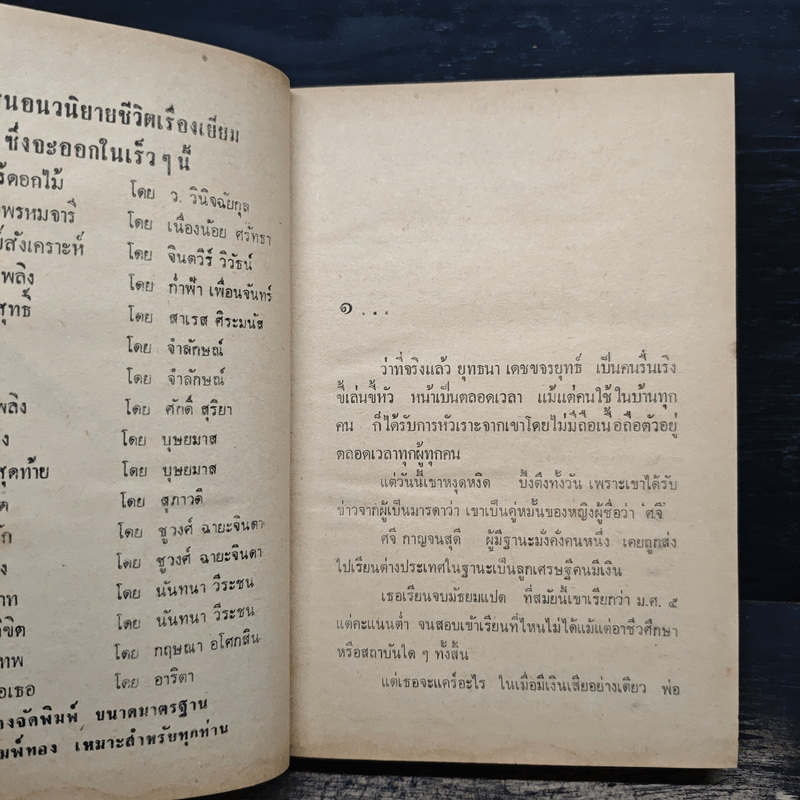 เสนอนวนิยายชีวิตเรื่องเยี่ยม
ซึ่งจะออกในเร็ว ๆ นี้
ดอกไม้ โดย ว. วินิจฉัยกุล
พรหมจารี โดย เนื่องน้อย ศรัทธา
สังเคราะห์ โดย จินตวีร์ วิวัธน์
เพลิง โดย ก่ำฟ้า เพื่อนจันทร์
สุทธิ์ โดย สาเรส ศิระมนัส
โดย จำลักษณ์
โดย จำลักษณ์
เพลิง โดย ศักดิ์ สุริยา
โดย บุษยมาส
สุดท้าย โดย บุษยมาส
โดย สุภาวดี
โดย ชูวงศ์ ฉายะจินดา
โดย ชูวงศ์ ฉายะจินดา
โดย นันทนา วีระชน
โดย นันทนา วีระชน
โดย กฤษณา อโศกสิน
เธอ โดย อาริตา
จัดพิมพ์ ขนาดมาตรฐาน
พิมพ์ทอง เหมาะสำหรับทุกท่าน
๑ ...
ว่าที่จริงแล้ว ยุทธนา เดชขจรยุทธ์ เป็นคนรื่นเริง
ขี้เล่นขี้หัว หน้าเป็นตลอดเวลา แม้แต่คนใช้ในบ้านทุก
คน ก็ได้รับการหัวเราะจากเขาโดยไม่มีถือเนื้อถือตัวอยู่
ตลอดเวลาทุกผู้ทุกคน
แต่วันนี้เขาหงุดหงิด ปั้งตึงทั้งวัน เพราะเขาได้รับ
ข่าวจากผู้เป็นมารดาว่า เขาเป็นคู่หมั้นของหญิงผู้ชื่อว่า 'ศจี'
ศจี กาญจนสุดี ผู้มีฐานะมั่งคั่งคนหนึ่ง เคยถูกส่ง
ไปเรียนต่างประเทศในฐานะเป็นลูกเศรษฐีคนมีเงิน
เธอเรียนจบมัธยมแปด ที่สมัยนี้เขาเรียกว่า ม.ศ. ๕
แต่คะแนนต่ำ จนสอบเข้าเรียนที่ไหนไม่ได้แม้แต่อาชีวศึกษา
หรือสถาบันใด ๆ ทั้งสิ้น
แต่เธอจะแคร์อะไร ในเมื่อมีเงินเสียอย่างเดียว พ่อ